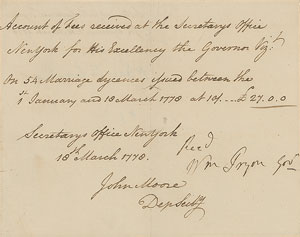 Account of fees received at the Secretarys Office
New York for His Excellency the Governor Vizt
On 54 Marriage Lycences issued between the
1st January and 18 March 1778 at 10/. ... £27.0.0
Secretarys Office New York
18th March 1778.
Rec'd
Wm Tryon Govr
John Moore
Dep Secry